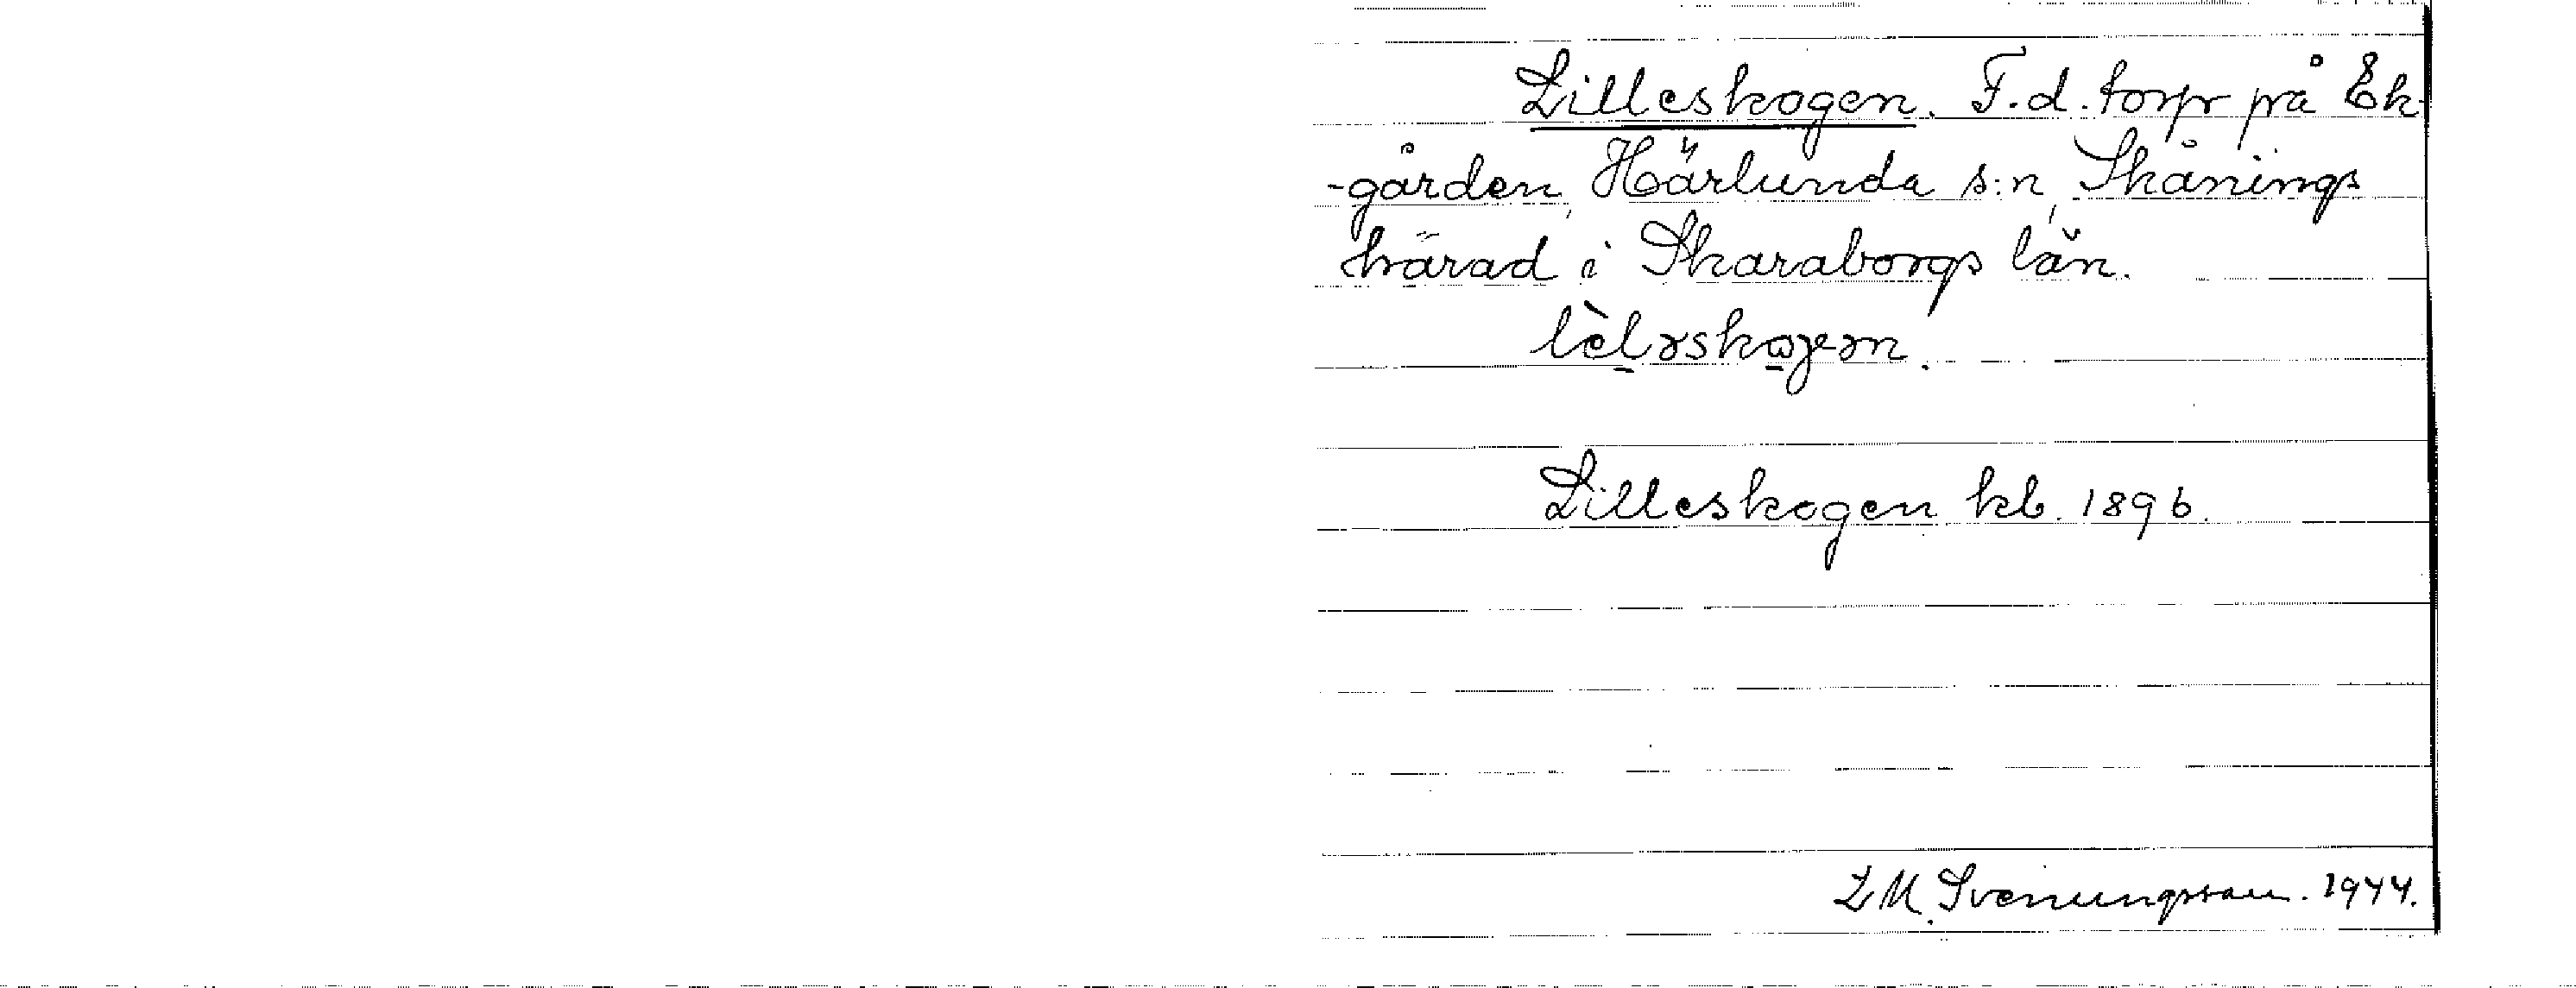 Lilleskogen. F.d. torp på Ek-
-gården, Härlunda s:n, Skånings
härad i Skaraborgs län.
lèləskωγən.
Lilleskogen kb. 1896.
L M. Svenungsson. 1944.